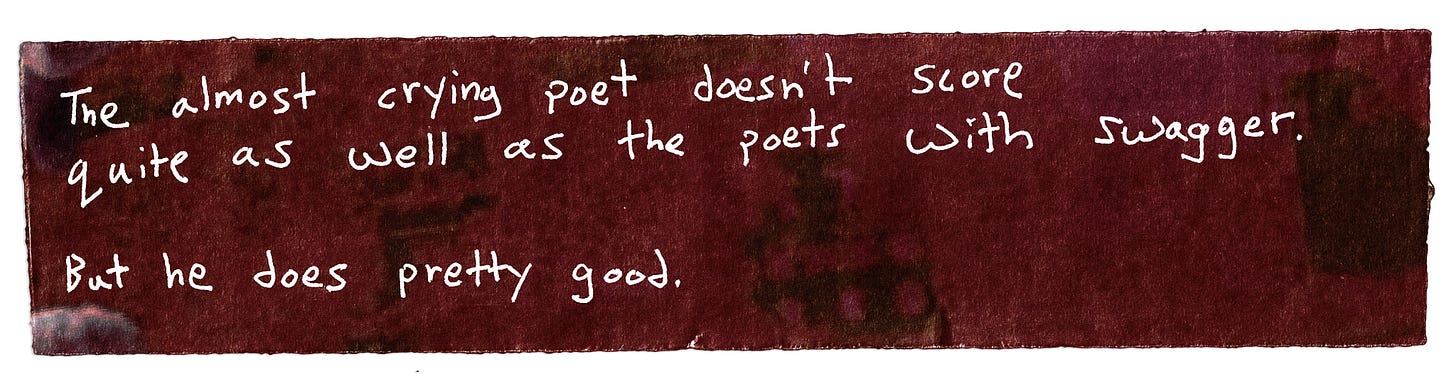 The almost crying poet doesn't score
quite as well as the poets with swagger.
But he does pretty good.